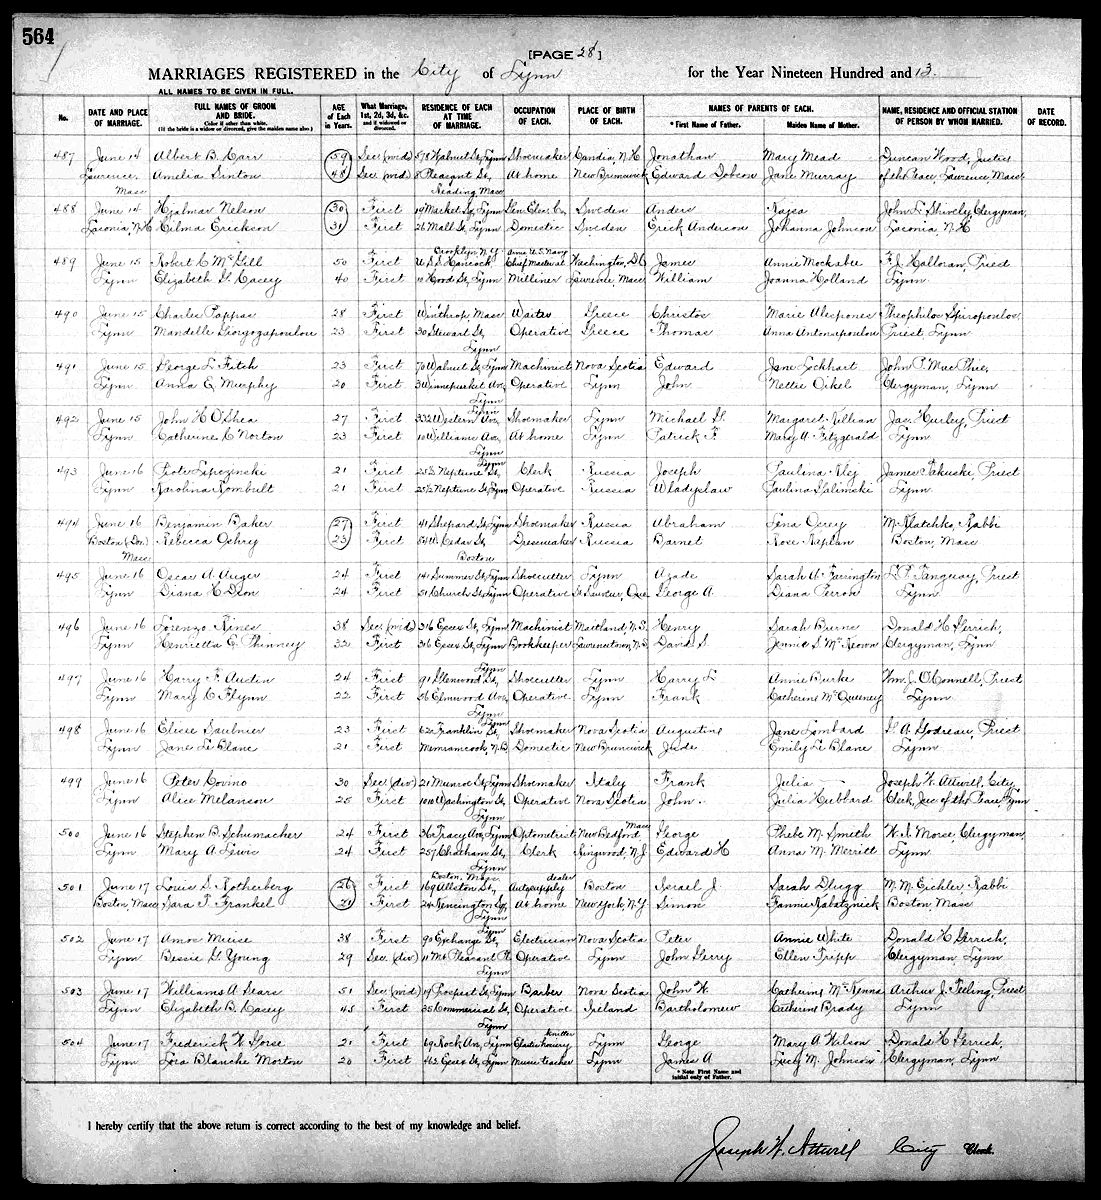 564
[PAGE 28]
MARRIAGES REGISTERED in the City of Lynn for the Year Nineteen Hundred and 13.
ALL NAMES TO BE GIVEN IN FULL.
No. DATE AND PLACE OF MARRIAGE. FULL NAMES OF GROOM AND BRIDE. Color if other than white. (If the bride is a widow or divorced, give the maiden name also.) AGE of Each in Years. What Marriage, 1st, 2d, 3d, &c. and if widowed or divorced. RESIDENCE OF EACH AT TIME OF MARRIAGE. OCCUPATION OF EACH. PLACE OF BIRTH OF EACH. NAMES OF PARENTS OF EACH. * First Name of Father. Maiden Name of Mother. NAME, RESIDENCE AND OFFICIAL STATION OF PERSON BY WHOM MARRIED. DATE OF RECORD.
487 June 14 Albert B. Carr 59 Sec (wid) 578 Walnut St, Lynn Shoemaker Candia, N.H. Jonathan Mary Mead Duncan Wood, Justice
Lawrence, Mass Amelia 48 Sec. (wid) 8 Pleasant St, Reading Mass At home New Brunswick Edward Dobson Jane Murray of the Peace, Lawrence, Mass
488 June 14 Hjalmar Nelson 30 First 19 Market Sq, Lynn Gen. Elec. Co, Sweden Anders Kajsa John L. Shively, Clergyman,
Laconia, N.H. Hilma Erickson 31 First 26 Mall St, Lynn Domestic Sweden Erick Anderson Johanna Johnson Laconia, N.H
489 June 15 Robert C McGill 50 First Brooklyn N.Y. U.S.S. Hancock U.S. Navy Washington, D.C James Annie Mockabee F.J. Halloran, Priest
Lynn Elizabeth G. Casey 40 First 10 Hood St, Lynn Milliner Lawrence, Mass William Joanna Holland Lynn
490 June 15 Charles Pappas 28 First Winthrop, Mass Waiter Greece Christos Marie Theophilos Spiropoulos,
Lynn 23 First 30 Stewart St, Lynn Operative Greece Thomas Anna Antonopoulou Priest, Lynn
491 June 15 George L. Fitch 23 First 70 Walnut St, Lynn Machinist Nova Scotia Edward Jane Lockhart John P. MacPhie,
Lynn Anna E. Murphy 20 First 3 Winnepurket Ave, Lynn Operative Lynn John Nettie Oikel Clergyman, Lynn
492 June 15 John H O'Shea 27 First 332 Western Ave, Lynn Shoemaker Lynn Michael G. Margaret Killian Jas. Hurley, Priest
Lynn Catherine C Norton 23 First 10 Williams Ave, Lynn At home Lynn Patrick F Mary A. Fitzgerald Lynn
493 June 16 Piotr 21 First 25½ Neptune St, Lynn Clerk Russia Joseph Paulina James Priest
Lynn Karolina Rombult 21 First 25½ Neptune St, Lynn Operative Russia Wladyslaw Paulina Lynn
494 June 16 Benjamin Baker 27 First 41 Shepard St, Lynn Shoemaker Russia Abraham Lena M. Klatchko, Rabbi
Boston (Dor.) Mass Rebecca 23 First 54 W. Cedar St, Boston Dressmaker Russia Barnet Rose Kaplan Boston, Mass
495 June 16 Oscar A. Auger 24 First 141 Summer St, Lynn Shoecutter Lynn Azade Sarah A. Farrington L.P. Tanguay, Priest
Lynn Diana H. Dion 24 First 51 Church St, Lynn Operative Que George A. Diana Perron Lynn
496 June 16 Lorenzo Hines 38 Sec. (wid) 316 Essex St, Lynn Machinist Maitland, N.S. Henry Sarah Burns Donald H. Gerrish,
Lynn Henrietta E. Phinney 32 First 316 Essex St, Lynn Bookkeeper Lawrencetown, N.S. David S. Jennie S. McKeown Clergyman, Lynn
497 June 16 Harry F. Austin 24 First 91 Glenwood St, Lynn Shoecutter Lynn Harry L Annie Burke Wm. J. O'Connell, Priest
Lynn Mary C Flynn 22 First 56 Elmwood Ave, Lynn Operative Lynn Frank Catherine McQueeney Lynn
498 June 16 Elisee Saulnier 23 First 62a Franklin St, Lynn Shoemaker Nova Scotia Augustine Jane Lombard G.A. Godreau, Priest
Lynn Jane LeBlanc 21 First Memramcook, N.B. Domestic New Brunswick Jude Emily LeBlanc Lynn
499 June 16 Peter Covino 30 Sec. (div) 21 Munroe St, Lynn Shoemaker Italy Frank Julia — Joseph W. Attwill, City
Lynn Alice Melanson 25 First 1010 Washington St, Lynn Operative Nova Scotia John Julia Hubbard Clerk, Jus. of the Peace, Lynn
500 June 16 Stephen B. Schumacher 24 First 36 Tracy Ave, Lynn Optometrist New Bedford Mass George Phebe M. Smith W.I. Morse, Clergyman,
Lynn Mary A Lewis 24 First 257 Chatham St, Lynn Clerk Ringwood, N.J. Edward H Anna M. Merritt Lynn
501 June 17 Louis S. Rotherberg 26 First Boston, Mass. 169 Allston St, Auto supply dealer Boston Israel J. Sarah Dlugg M.M. Eichler, Rabbi
Boston, Mass Sara T. Frankel 21 First 24 Kensington Sq, Lynn At home New York, N.Y. Simon Fannie Rabatznick Boston, Mass
502 June 17 Amos Muise 38 First 90 Exchange St, Lynn Electrician Nova Scotia Peter Annie White Donald H. Gerrish,
Lynn Bessie G. Young 29 Sec. (div) 11 Mt Pleasant Pl. Lynn Operative Lynn John Gerry Ellen Tripp Clergyman, Lynn
503 June 17 Williams A Sears 51 Sec (wid) 19 Prospect St, Lynn Barber Nova Scotia John W. Catherine McKenna Arthur J. Teeling, Priest
Lynn Elizabeth B. Casey 45 First 35 Commercial St, Lynn Operative Ireland Bartholomew Catherine Brady Lynn
504 June 17 Frederick W. Gorse 21 First 69 Rock Av, Lynn knitter Lynn George Mary A Wilson Donald H. Gerrish,
Lynn Lora Blanche Morton 20 First 463 Essex St, Lynn Music teacher Lynn James A Lucy M. Johnson Clergyman, Lynn
* Note First Name and initial only of Father.
I hereby certify that the above return is correct according to the best of my knowledge and belief.
Joseph W. Attwill City Clerk.